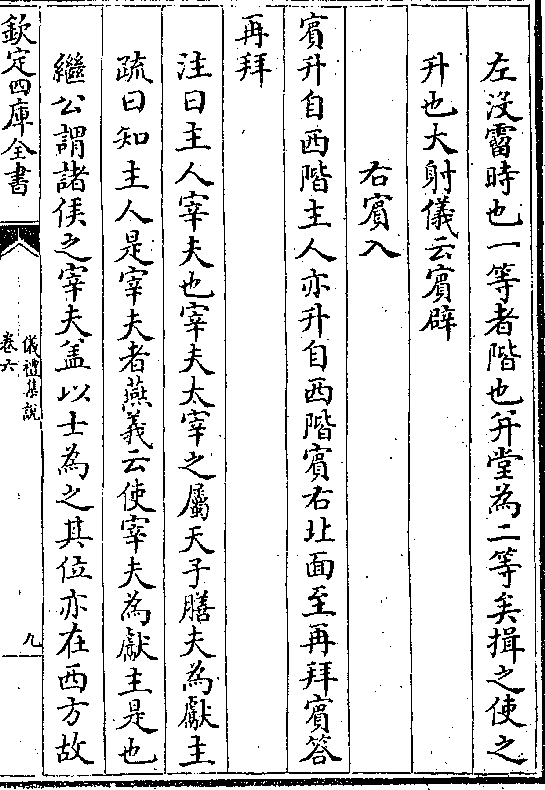 左沒霤時也一等者階也并堂為二等矣揖之使之
升也大射儀云賓辟
右賓入
賓升自西階主人亦升自西階賓右北面至再拜賓答
再拜
注曰主人宰夫也宰夫太宰之屬天子膳夫為獻主
疏曰知主人是宰夫者燕義云使宰夫為獻主是也
繼公謂諸侯之宰夫盖以士為之其位亦在西方故
欽定四庫全書
儀禮集說
卷六
九